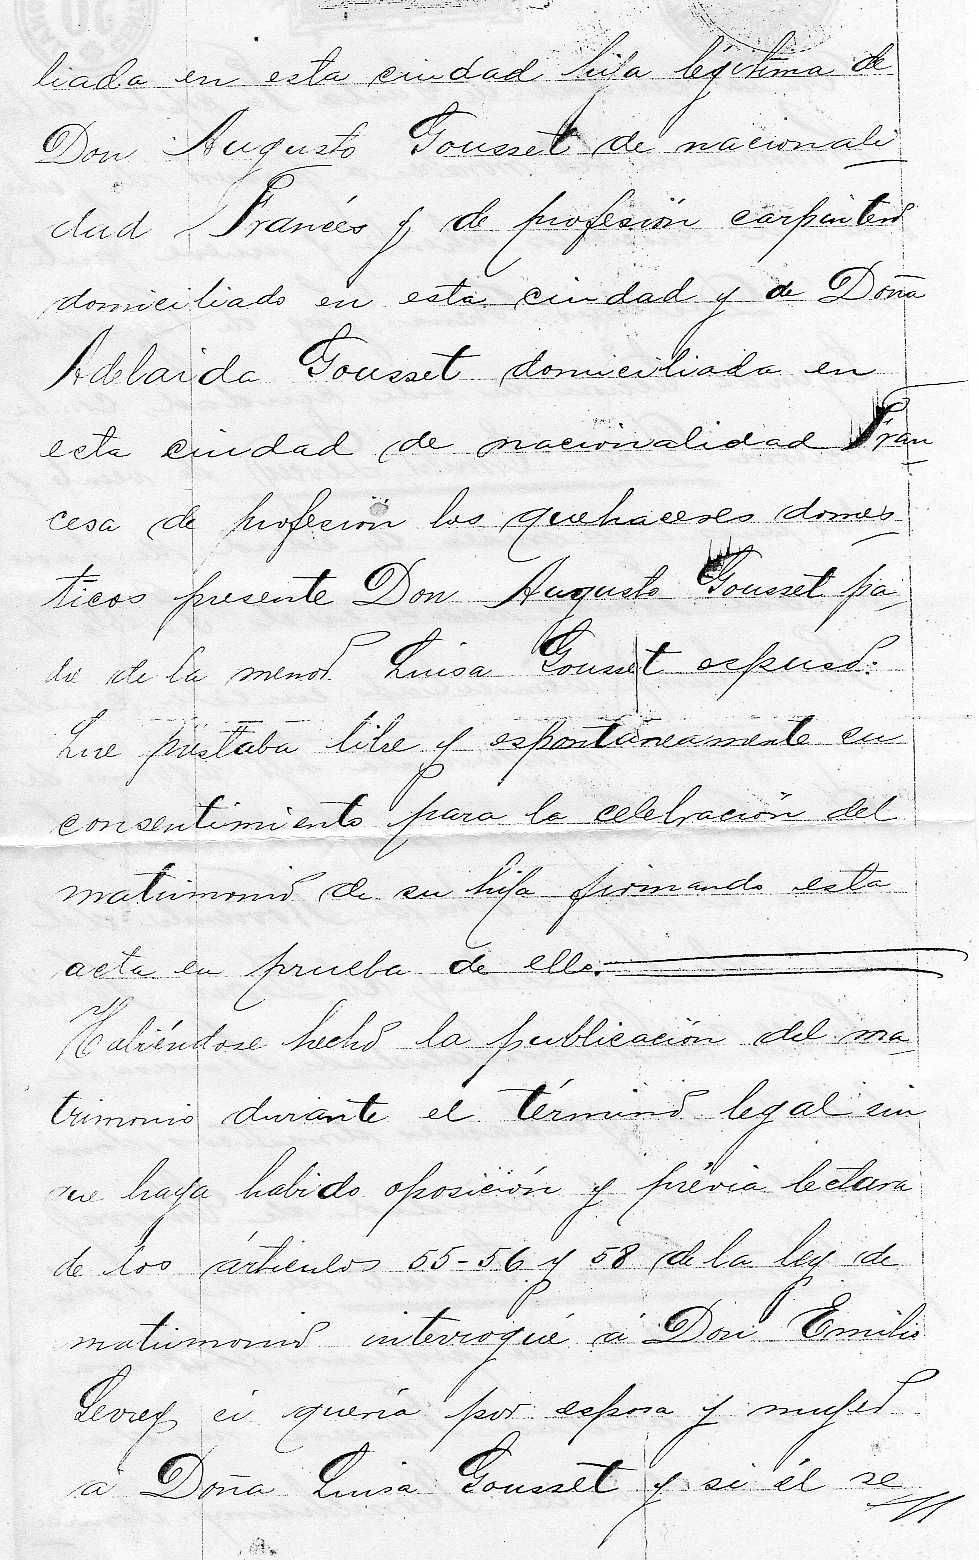 liada en esta ciudad hija légitima de
Don Augusto Gousset de nacionali
dad Francés y de profesión carpintero
domiciliado en esta ciudad y de Doña
Adelaida Gousset domiciliada en
esta ciudad de nacionalidad Fran
cesa de profesión los quehaceres domes
ticos presente Don Augusto Gousset pa
dre de la menor Luisa Gousset espuso:
Que prestaba libre y espontáneamente su
consentimiento para la celebración del
matrimonio de su hija firmando esta
acta en prueba de ello.
Habiéndose hecho la publicación del ma
trimonio durante el término legal sin
que haya habido oposición y prévia lectura
de los árticulos 55-56 y 58 de la ley de
matrimonio interrogué á Don Emilio
Levrey si queria por esposa y mujer
á Doña Luisa Gousset y si él se